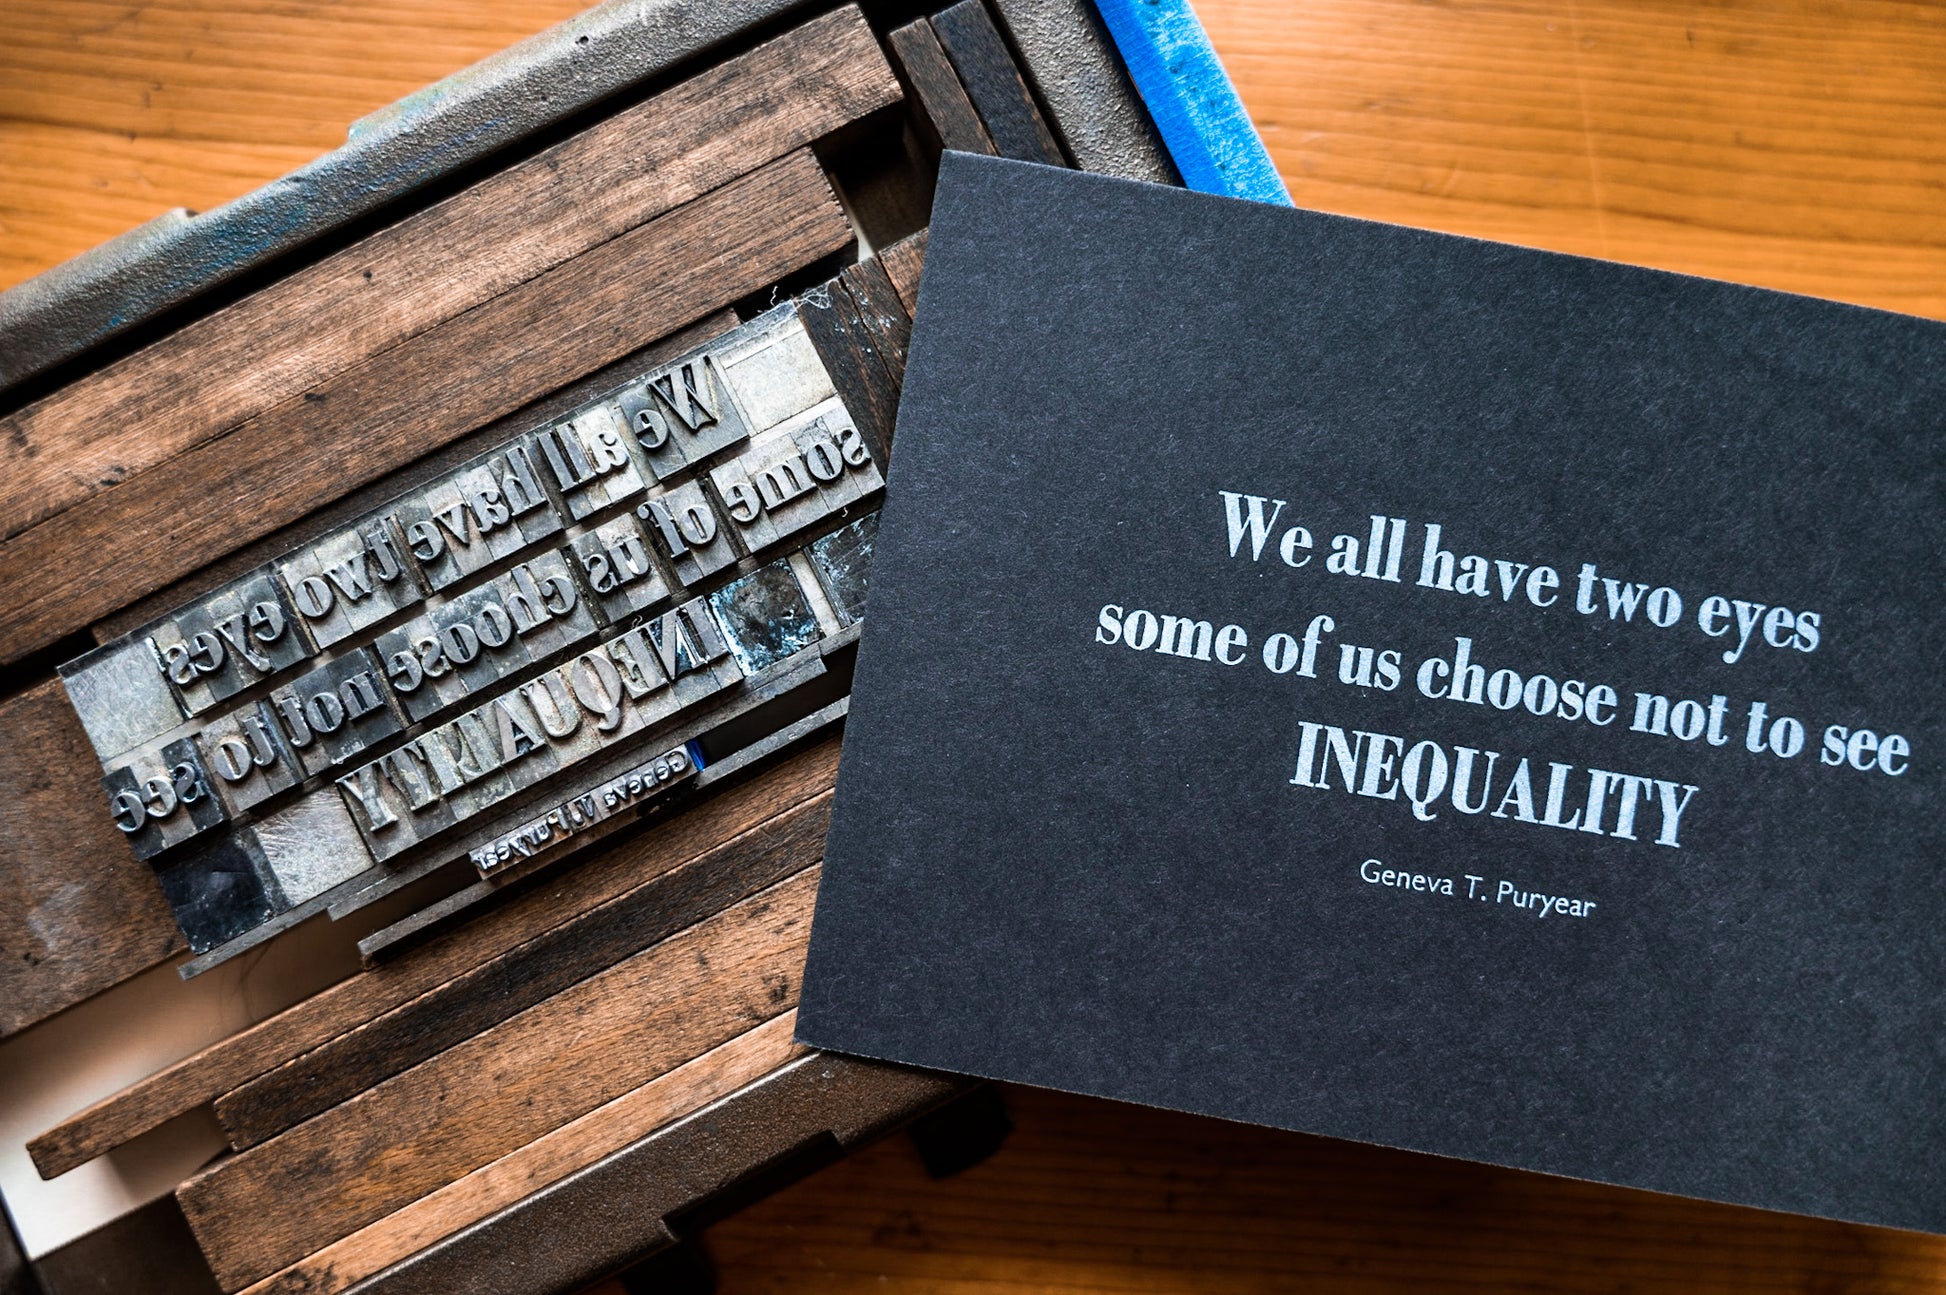 We all have two eyes
some of us choose not to see
INEQUALITY
Geneva T. Puryear
We all have two eyes
some of us choose not to see
INEQUALITY
Geneva T. Puryear